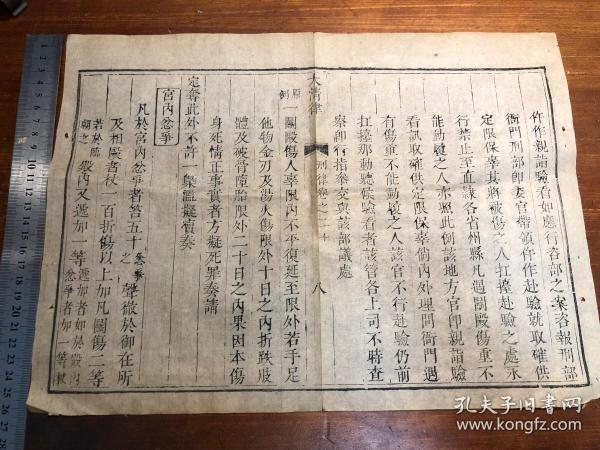 仵作親詣驗看如應行咨部之案咨報刑部
衙門刑部卽委官帶領仵作赴驗就取確供
定限保辜其將被傷之人扛擡赴驗之處永
行禁止至直隸各省州縣凡遇鬭毆傷重不
能動履之人亦照此例該地方官卽親詣驗
看訊取確供定限保辜倘內外理問衙門遇
有傷重不能動履之人該官不行赴驗仍前
扛擡那動聽候驗看者該管各上司不時查
察卽行指參交與該部議處
大淸律
刑律卷之二十
八
原例
一鬭毆傷人辜限內不平復延至限外若手足
他物金刃及湯火傷限外十日之內折跌肢
體及破骨墮胎限外二十日之內果因本傷
身死情正事實者方擬死罪奏請
定奪此外不許一槩濫擬瀆奏
宮內忿爭
凡於宮內忿爭者笞五十忿爭之聲徹於御在所
及相毆者杖一百折傷以上加凡鬭傷二等
若於臨朝之殿內又遞加一等遞加者如於殿內忿爭者加一等
孔夫子旧书网
www.kongfz.com